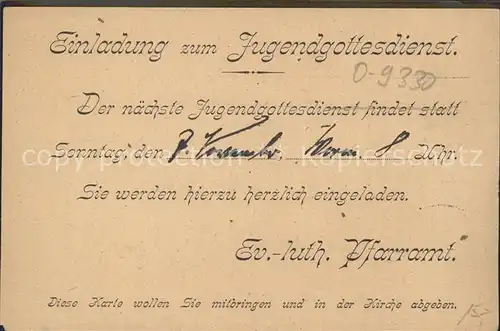 Einladung zum Jugendgottesdienst.
0-9330
Der nächste Jugendgottesdienst findet statt
Sonntag, den 7. November, Vorm. 8 Uhr.
Sie werden hierzu herzlich eingeladen.
Ev.-luth. Pfarramt.
Diese Karte wollen Sie mitbringen und in der Kirche abgeben.
15.-